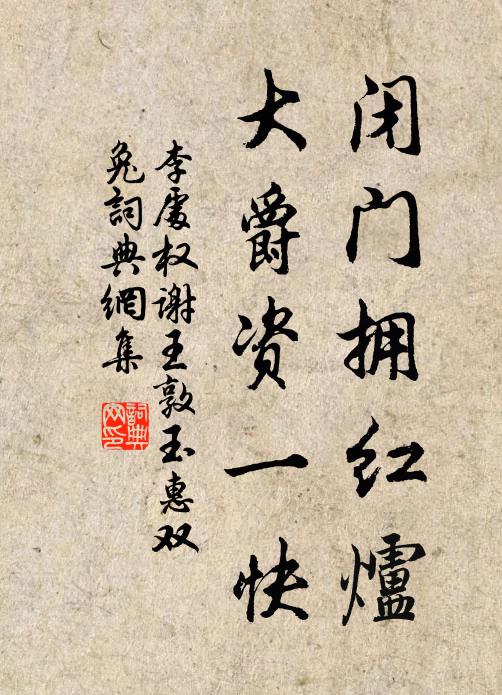 闭门拥红爐
大爵资一快
李處权谢王敦玉惠双
兔詞典網集
詞典
网印